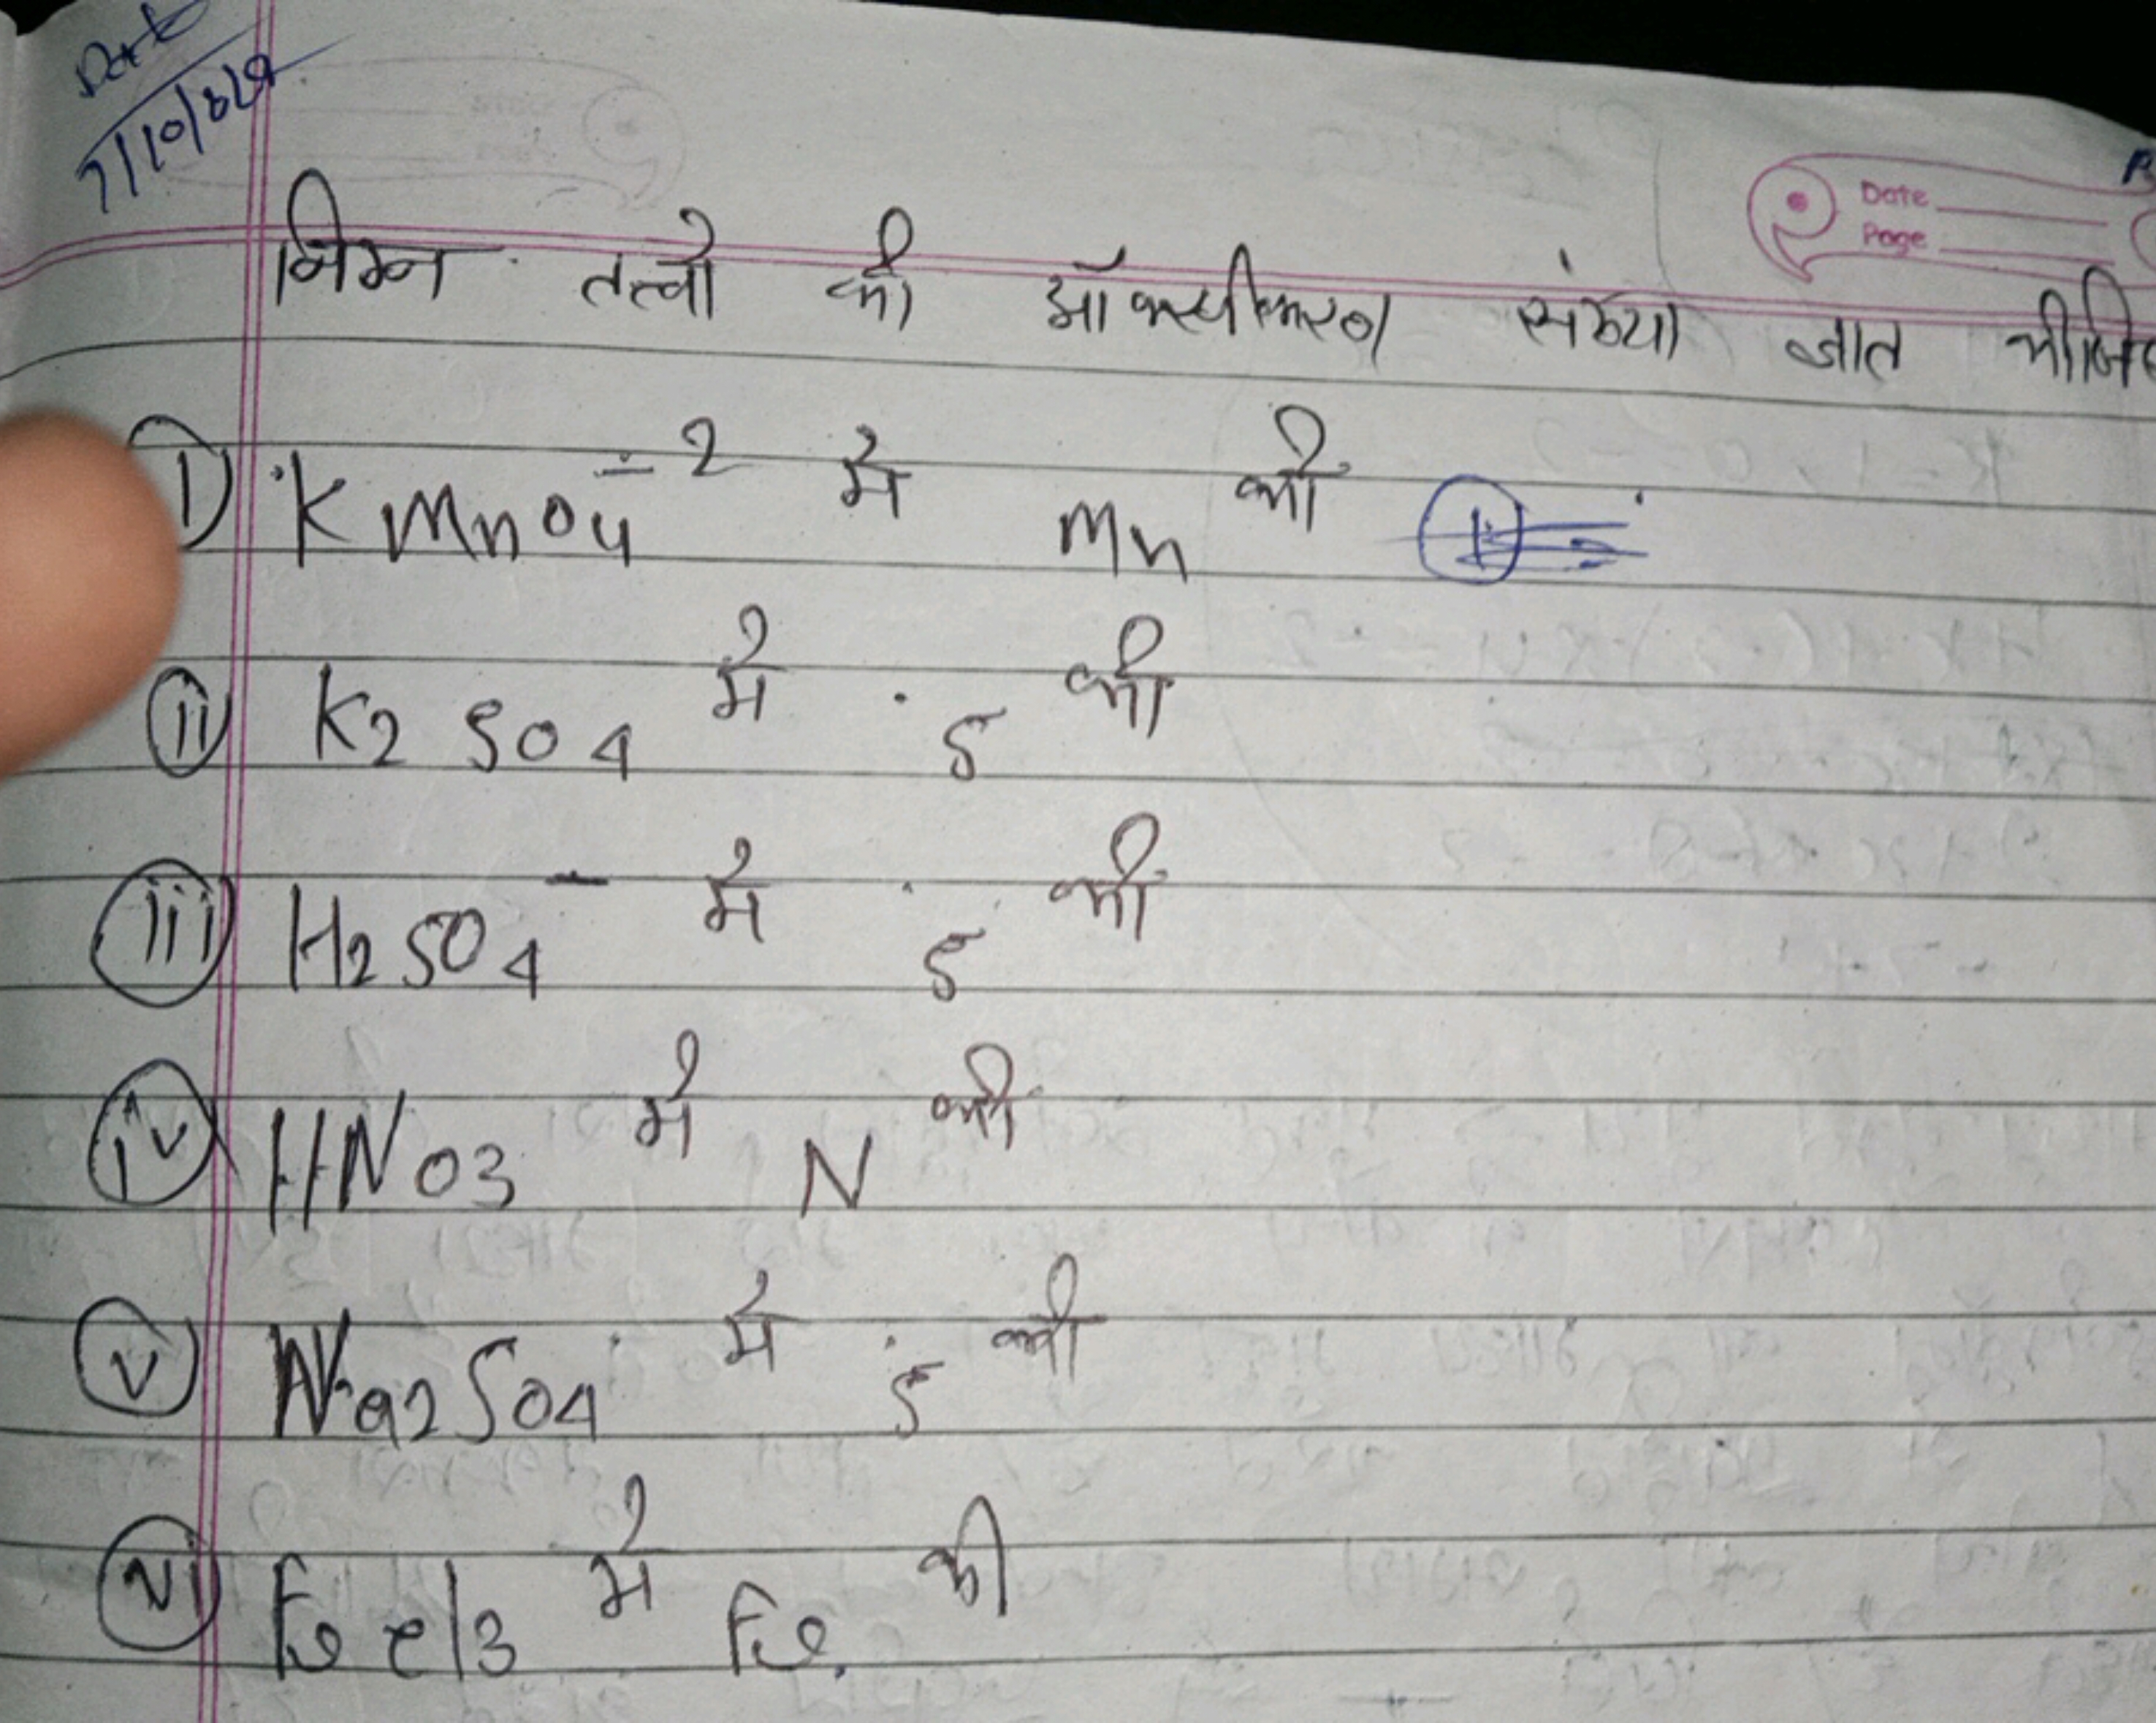 Date
7/10/024
Date
Page
निम्न तत्वो की ऑक्सीकरण संख्या ज्ञात कीजिए
i) KMnO4 ÷ 2 में Mn की
ii) K2SO4 में S की
iii) H2SO4 - में S की
iv) HNO3 में N की
v) Na2SO4 में S की
vi) Fecl3 में Fe की